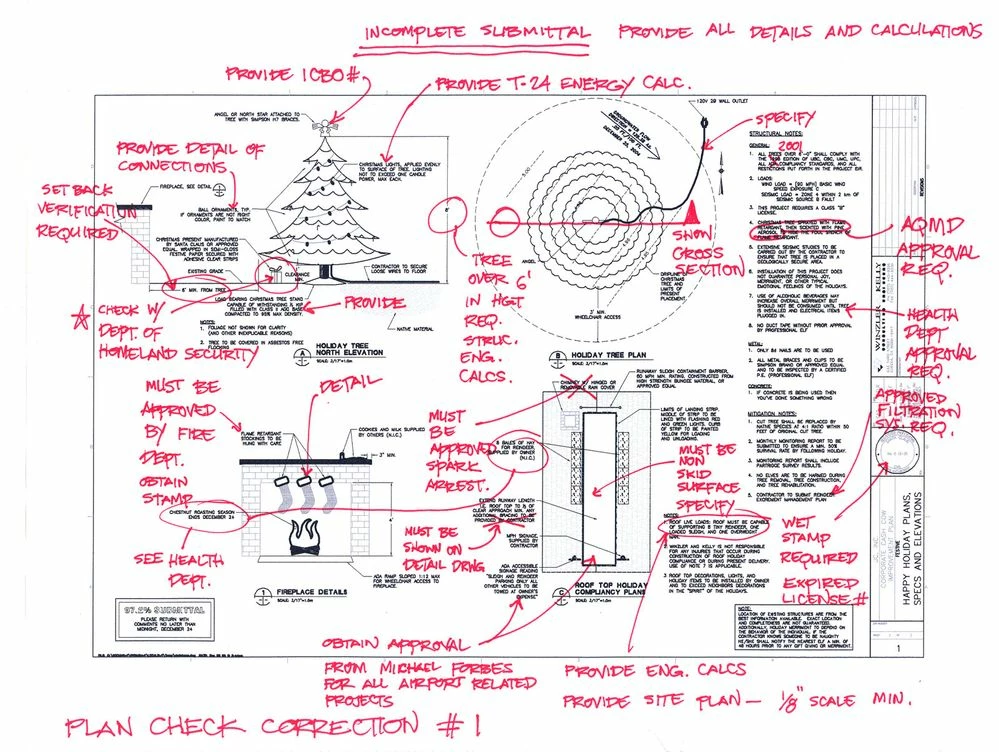 INCOMPLETE SUBMITTAL PROVIDE ALL DETAILS AND CALCULATIONS
PROVIDE ICBO#
PROVIDE T-24 ENERGY CALC.
ANGEL OR NORTH STAR ATTACHED TO
TREE WITH SIMPSON H7 BRACES.
PROVIDE DETAIL OF
CONNECTIONS
FIREPLACE, SEE DETAIL
SET BACK
VERIFICATION
REQUIRED
CHRISTMAS LIGHTS, APPLIED EVENLY
TO SURFACE OF TREE. LIGHTS
NOT TO EXCEED ONE CANDLE
POWER, MAX EACH.
BALL ORNAMENTS, TYP.
IF ORNAMENTS ARE NOT RIGHT
COLOR, PAINT TO MATCH
CHRISTMAS PRESENT MANUFACTURED
BY SANTA CLAUS OR APPROVED
EQUAL. WRAPPED IN SEMI-GLOSS
FESTIVE PAPER SECURED WITH
ADHESIVE CLEAR STRIPS
EXISTING GRADE
CLEARANCE
MIN.
6" MIN. FROM TREE
CONTRACTOR TO SECURE
LOOSE WIRES TO FLOOR
LOAD BEARING CHRISTMAS TREE STAND
CAPABLE OF WITHSTANDING
FILLED WITH CLASS II AGG BASE
COMPACTED TO 95% MAX DENSITY.
PROVIDE
NATIVE MATERIAL
CHECK W/
DEPT. OF
HOMELAND SECURITY
NOTES:
1. FOLIAGE NOT SHOWN FOR CLARITY
(AND OTHER INEXPLICABLE REASONS)
2. TREE TO BE COVERED IN ASBESTOS FREE
FLOCKING
A HOLIDAY TREE
NORTH ELEVATION
8'
TREE
OVER 6'
IN HGT
REQ.
STRUC.
ENG.
CALCS.
120V 2Φ WALL OUTLET
SPECIFY
SHOW
CROSS
SECTION
ANGEL
DRIPLINE
CHRISTMAS
TREE AND
LIMITS OF
PRESENT
PLACEMENT.
3' MIN.
WHEELCHAIR ACCESS
B HOLIDAY TREE PLAN
STRUCTURAL NOTES:
GENERAL:
2001
1. ALL TREES OVER 6'-0" SHALL COMPLY WITH
EDITION OF UBC, CBC, UMC, UPC,
ALL ADA COMPLIANCY STANDARDS, AND ALL
RESTRICTIONS PUT FORTH IN THE PROJECT EIR.
2. LOADS:
WIND LOAD = (90 MPH) BASIC WIND
SPEED EXPOSURE C
SEISMIC LOAD = ZONE 4 WITHIN 2 km OF
SEISMIC SOURCE B FAULT
3. THIS PROJECT REQUIRES A CLASS "B"
LICENSE.
4. CHRISTMAS TREE SPRAYED WITH FLAME
RETARDANT, THEN SCENTED WITH PINE
AEROSOL TO HIDE THE FOUL STENCH OF
FLAME RETARDANT.
5. EXTENSIVE SEISMIC STUDIES TO BE
CARRIED OUT BY THE CONTRACTOR TO
ENSURE THAT TREE IS PLACED IN A
GEOLOGICALLY SECURE AREA.
6. INSTALLATION OF THIS PROJECT DOES
NOT GUARANTEE PERSONAL JOY,
MERRIMENT, OR OTHER TYPICAL
EMOTIONAL FEELINGS OF THE HOLIDAYS.
7. USE OF ALCOHOLIC BEVERAGES MAY
INCREASE OVERALL MERRIMENT BUT SHOULD
NOT BE CONSUMED UNTIL TREE
IS INSTALLED AND ELECTRICAL ITEMS
PLUGGED IN.
8. NO DUCT TAPE WITHOUT PRIOR APPROVAL
BY PROFESSIONAL ELF
METAL:
1. ONLY 8d NAILS ARE TO BE USED
2. ALL METAL BRACES AND CLIPS TO BE
SIMPSON BRAND OR APPROVED EQUAL
AND TO BE INSPECTED BY A CERTIFIED
P.E. (PROFESSIONAL ELF)
CONCRETE:
1. IF CONCRETE IS BEING USED THEN
YOU'VE DONE SOMETHING WRONG
MITIGATION NOTES:
1. CUT TREE SHALL BE REPLACED BY
NATIVE SPECIES AT 4:1 RATIO WITHIN 50
FEET OF ORIGINAL CUT TREE.
2. MONTHLY MONITORING REPORT TO BE
SUBMITTED TO ENSURE A MIN. 50%
SURVIVAL RATE BY FOLLOWING HOLIDAY.
3. MONITORING REPORT SHALL INCLUDE
PARTRIDGE SURVEY RESULTS.
4. NO ELVES ARE TO BE HARMED DURING
TREE REMOVAL, TREE CONSTRUCTION,
AND TREE REHABILITATION.
5. CONTRACTOR TO SUBMIT REINDEER
EXCREMENT MANAGEMENT PLAN
AQMD
APPROVAL
REQ.
HEALTH
DEPT
APPROVAL
REQ.
APPROVED
FILTRATION
SYS. REQ.
WINZLER & KELLY
MUST BE
APPROVED
BY FIRE
DEPT.
OBTAIN
STAMP
DETAIL
FLAME RETARDANT
STOCKINGS TO BE
HUNG WITH CARE
COOKIES AND MILK SUPPLIED
BY OTHERS (N.I.C.)
3" MIN.
CHESTNUT ROASTING SEASON
ENDS DECEMBER 24
SEE HEALTH
DEPT.
4'
ADA RAMP SLOPED 1:12 MAX
FOR WHEELCHAIR ACCESS TO
FIREPLACE
1 FIREPLACE DETAILS
MUST
BE
APPROVED
SPARK
ARREST.
CHIMNEY W/ HINGED OR
REMOVABLE RAIN COVER
RUNAWAY SLEIGH CONTAINMENT BARRIER,
60 MPH MIN. RATING, CONSTRUCTED FROM
HIGH STRENGTH BUNDGE MATERIAL, OR
APPROVED EQUAL
8 BALES OF HAY
FOR REINDEER
SUPPLIED BY OWNER
(N.I.C.)
LIMITS OF LANDING STRIP.
MIDDLE OF STRIP TO BE
LINED WITH FLASHING RED
AND GREEN LIGHTS. CURB
OF STRIP TO BE PAINTED
YELLOW FOR LOADING
AND UNLOADING.
MUST BE
NON
SKID
SURFACE
SPECIFY
EXTEND RUNWAY LENGTH
I.E. ROOF TOP TO 15' OF
CLEAR APPROACH MIN. ANY
ADDITIONAL BRACING TO BE
PROVIDED BY CONTRACTOR
MUST BE
SHOWN ON
DETAIL DRWG
MPH SIGNAGE,
SUPPLIED BY
CONTRACTOR
ADA ACCESSIBLE
SIGNAGE READING
"SLEIGH AND REINDEER
PARKING ONLY, ALL
OTHER VEHICLES TO BE
TOWED AT OWNER'S
EXPENSE"
C ROOF TOP HOLIDAY
COMPLIANCY PLANS
NOTES:
1. ROOF LIVE LOADS: ROOF MUST BE CAPABLE
OF SUPPORTING 8 TINY REINDEER, ONE
LOADED SLEIGH, AND ONE OVERWEIGHT
MAN.
2. WINZLER AND KELLY IS NOT RESPONSIBLE
FOR ANY INJURIES THAT OCCUR DURING
CONSTRUCTION OF ROOFTOP HOLIDAY
COMPLIANCE OR DURING PRESENT DELIVERY.
USE OF NOTE 7 IS APPLICABLE.
3. ROOF TOP DECORATIONS, LIGHTS, AND
HOLIDAY ITEMS TO BE INSTALLED BY OWNER
AND TO EXCEED NEIGHBORS DECORATIONS
IN THE "SPIRIT" OF THE HOLIDAYS.
WET
STAMP
REQUIRED
EXPIRED
LICENSE#
NOTE:
LOCATION OF EXISTING STRUCTURES ARE FROM THE
BEST INFORMATION AVAILABLE. EXACT LOCATION
AND COMPLETENESS ARE NOT GUARANTEED.
ADDITIONALLY, HOLIDAY MERRIMENT TO DEPEND ON
THE BEHAVIOR OF THE INDIVIDUAL. IF THE
CONTRACTOR KNOWS SOMEONE TO BE NAUGHTY
HE/SHE SHALL NOTIFY THE NEAREST ELF A MIN. OF
48 HOURS PRIOR TO ANY GIFT GIVING OR MERRIMENT.
CORPORATE CASH COW
IMPROVEMENT PLAN
FESTIVE
HAPPY HOLIDAY PLANS,
SPECS AND ELEVATIONS
1
97.2% SUBMITTAL
PLEASE RETURN WITH
COMMENTS NO LATER THAN
MIDNIGHT, DECEMBER 24
OBTAIN APPROVAL
FROM MICHAEL FORBES
FOR ALL AIRPORT RELATED
PROJECTS
PROVIDE ENG. CALCS
PROVIDE SITE PLAN — 1/8" SCALE MIN.
PLAN CHECK CORRECTION #1